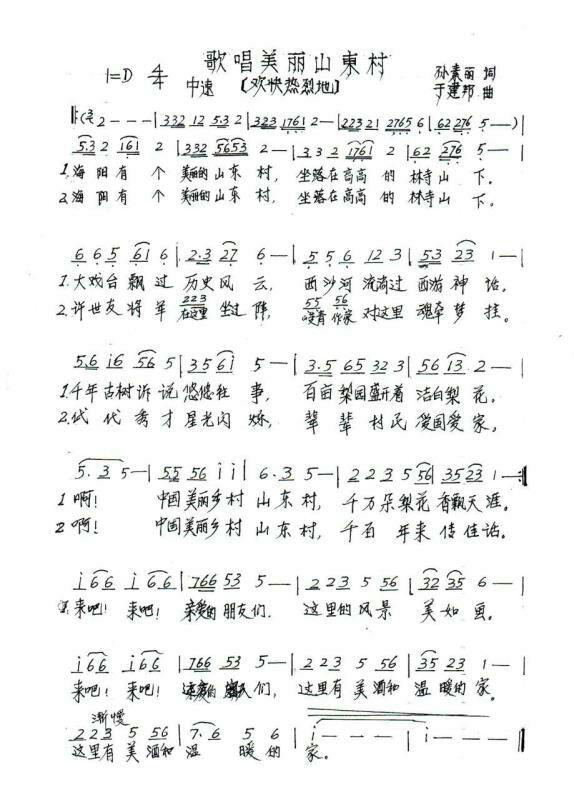 歌唱美丽山東村
1=D 4/4 中速 【欢快热烈地】 孙素丽 词
于建邦 曲
2 - - - | 332 12 5.3 2 | 323 1761 2 - | 223 21 2765 6 | 62 276 5 - - )|
5.3 2 161 2 | 332 5653 2 - | 3 3 2 1761 2 | 62 276 5 - |
1. 海阳有个美丽的山东村，坐落在高高的林寺山下。
2. 海阳有个美丽的山东村，坐落在高高的林寺山下。
6 6 5 61 6 | 2.3 27 6 - | 5 5 6 12 3 | 53 23 1 - |
1. 大戏台飘过历史风云，西沙河流淌过西游神话。
223 55 56
2. 许世友将军在这里坐过阵，峻青作家对这里魂牵梦挂。
5.6 i6 56 5 | 3 5 6i 5 - | 3.5 65 32 3 | 56 13 2 - |
1. 千年古树诉说悠悠往事，百亩梨园盛开着洁白梨花。
2. 代代秀才星光闪烁，辈辈村民爱国爱家。
5. 3 5 - | 55 56 i i | 6. 3 5 - | 2 2 3 5 56 | 35 23 1 - :|
1 啊！中国美丽乡村山东村，千万朵梨花香飘天涯。
2 啊！中国美丽乡村山东村，千百年来传佳话。
i 66 i 66 | 766 53 5 - | 2 2 3 5 56 | 32 35 6 - |
来吧！来吧！亲爱的朋友们，这里的风景美如画。
i 66 i 66 | 766 53 5 - | 2 2 3 5 56 | 35 23 1 - |
来吧！来吧！们，这里有美酒和温暖的家。
渐慢
2 2 3 5 56 | 7. 6 5 6 | i - - - | i - - - |
这里有美酒和温暖的家。